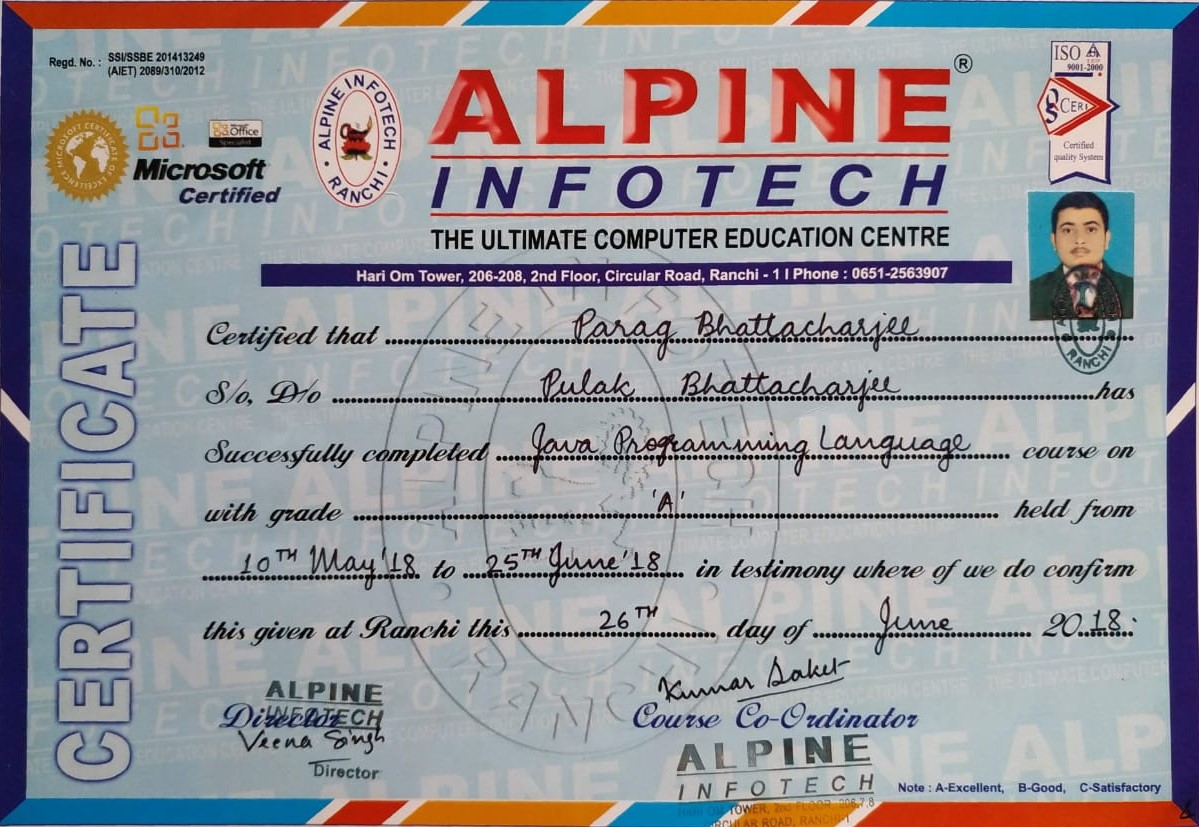 Regd. No. : SSI/SSBE 201413249
(AIET) 2089/310/2012
MICROSOFT CERTIFICATE OF EXCELLENCE
Microsoft Office
Specialist
Microsoft
Certified
ALPINE INFOTECH
RANCHI
ALPINE ®
INFOTECH
THE ULTIMATE COMPUTER EDUCATION CENTRE
ISO
9001-2000
CERT
Certified
quality System
Hari Om Tower, 206-208, 2nd Floor, Circular Road, Ranchi - 1 I Phone : 0651-2563907
RANCHI
CERTIFICATE
Certified that Parag Bhattacharjee
S/o, D/o Pulak Bhattacharjee has
Successfully completed Java Programming Language course on
with grade 'A' held from
10TH May'18 to 25TH June'18 in testimony where of we do confirm
this given at Ranchi this 26TH day of June 2018.
ALPINE
INFOTECH
Director
Veena Singh
Director
Kumar Saket
Course Co-Ordinator
ALPINE
INFOTECH
HARI OM TOWER, 2nd FLOOR, 206,7,8
CIRCULAR ROAD, RANCHI-1
Note : A-Excellent, B-Good, C-Satisfactory